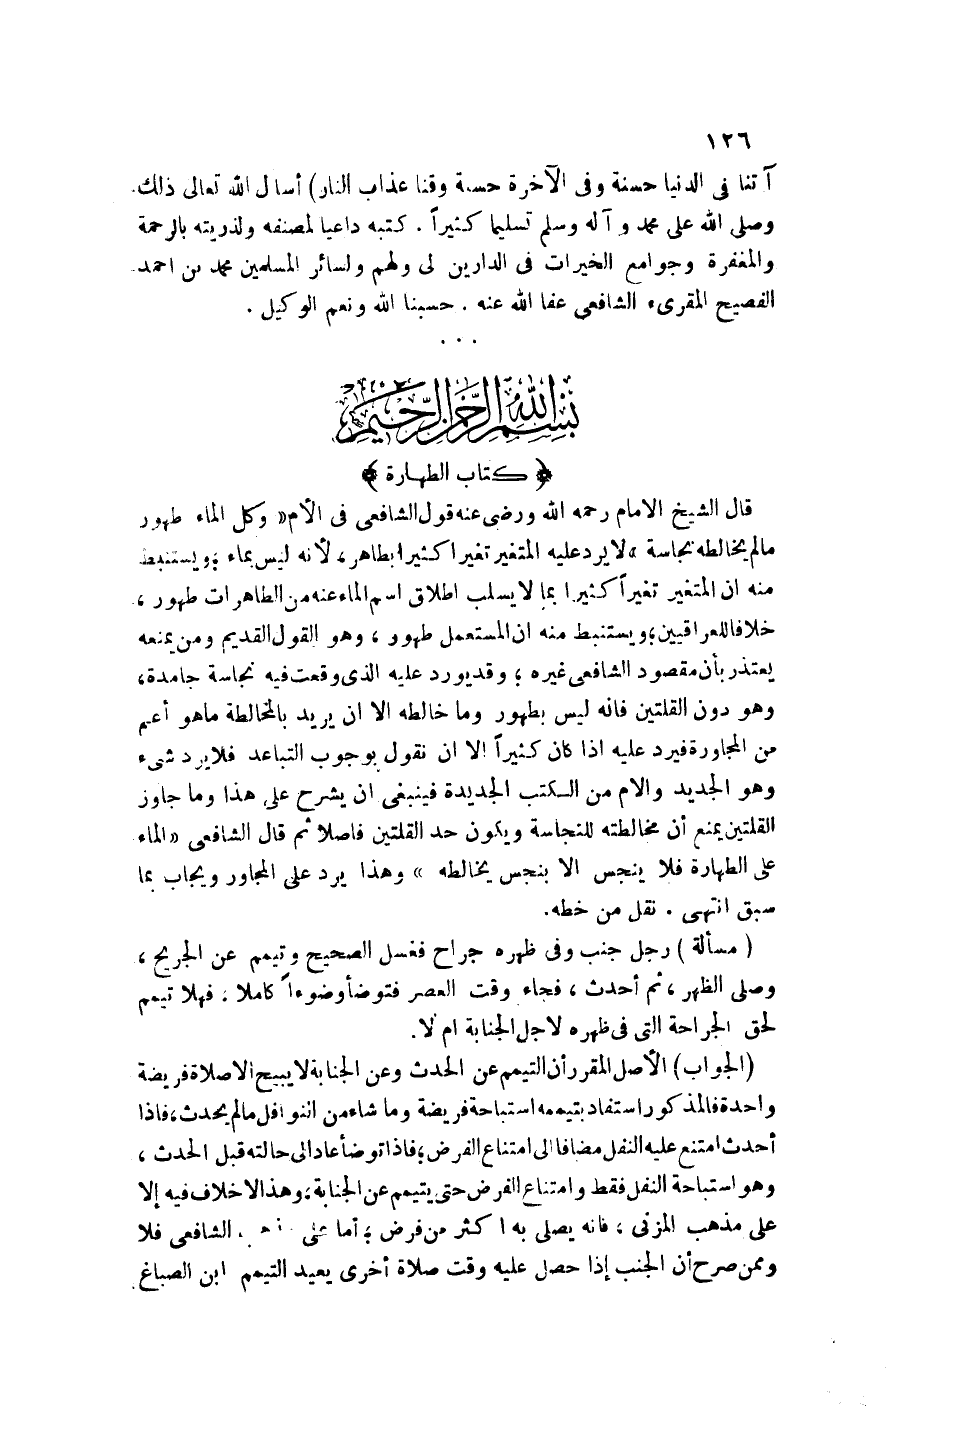 ١٢٦
آتنا فى الدنيا حسنة وفى الآخرة حسنة وقنا عذاب النار) أسأل الله تعالى ذلك.
وصلى الله على محمد وآله وسلم تسليما كثيراً . كتبه داعيا لمصنفه ولذريته بالرحمة
والمغفرة وجوامع الخيرات فى الدارين لى ولهم ولسائر المسلمين محمد بن احمد
الفصيح المقرىء الشافعى عفا الله عنه . حسبنا الله ونعم الوكيل .
. . .
بسم الله الرحمن الرحيم
﴿ كتاب الطهارة ﴾
قال الشيخ الامام رحمه الله ورضى عنه قول الشافعى فى الأم « وكل الماء طهور
مالم يخالطه نجاسة » لا يرد عليه المتغير تغيرا كثيرا بطاهر، لأنه ليس بماء ؛ ويستنبط
منه ان المتغير تغيراً كثيرا بما لا يسلب اطلاق اسم الماء عنه من الطاهرات طهور ،
خلافا للعراقيين ؛ ويستنبط منه ان المستعمل طهور ، وهو القول القديم ومن يمنعه
يعتذر بأن مقصود الشافعى غيره ؛ وقد يورد عليه الذى وقعت فيه نجاسة جامدة،
وهو دون القلتين فانه ليس بطهور وما خالطه الا ان يريد بالمخالطة ماهو أعم
من المجاورة فيرد عليه اذا كان كثيراً الا ان نقول بوجوب التباعد فلا يرد شىء
وهو الجديد والام من الكتب الجديدة فينبغى ان يشرح على هذا وما جاوز
القلتين يمنع أن مخالطته للنجاسة ويكون حد القلتين فاصلا ثم قال الشافعى « الماء
على الطهارة فلا ينجس الا بنجس يخالطه » وهذا يرد على المجاور ويجاب بما
سبق انتهى . نقل من خطه.
( مسألة ) رجل جنب وفى ظهره جراح فغسل الصحيح وتيمم عن الجريح ،
وصلى الظهر ، ثم أحدث ، فجاء وقت العصر فتوضأ وضوءاً كاملا ؛ فهلا تيمم
لحق الجراحة التى فى ظهره لاجل الجنابة ام لا.
(الجواب) الأصل المقرر أن التيمم عن الحدث وعن الجنابة لا يبيح الا صلاة فريضة
واحدة فالمذكور استفاد بتيممه استباحة فريضة وما شاء من النوافل مالم يحدث، فاذا
أحدث امتنع عليه النفل مضافا الى امتناع الفرض ؛ فاذا توضأ عاد الى حالته قبل الحدث ،
وهو استباحة النفل فقط وامتناع الفرض حتى يتيمم عن الجنابة ، وهذا لا خلاف فيه إلا
على مذهب المزنى ، فانه يصلى به اكثر من فرض ؛ أما على الشافعى فلا
وممن صرح أن الجنب إذا حصل عليه وقت صلاة أخرى يعيد التيمم ابن الصباغ